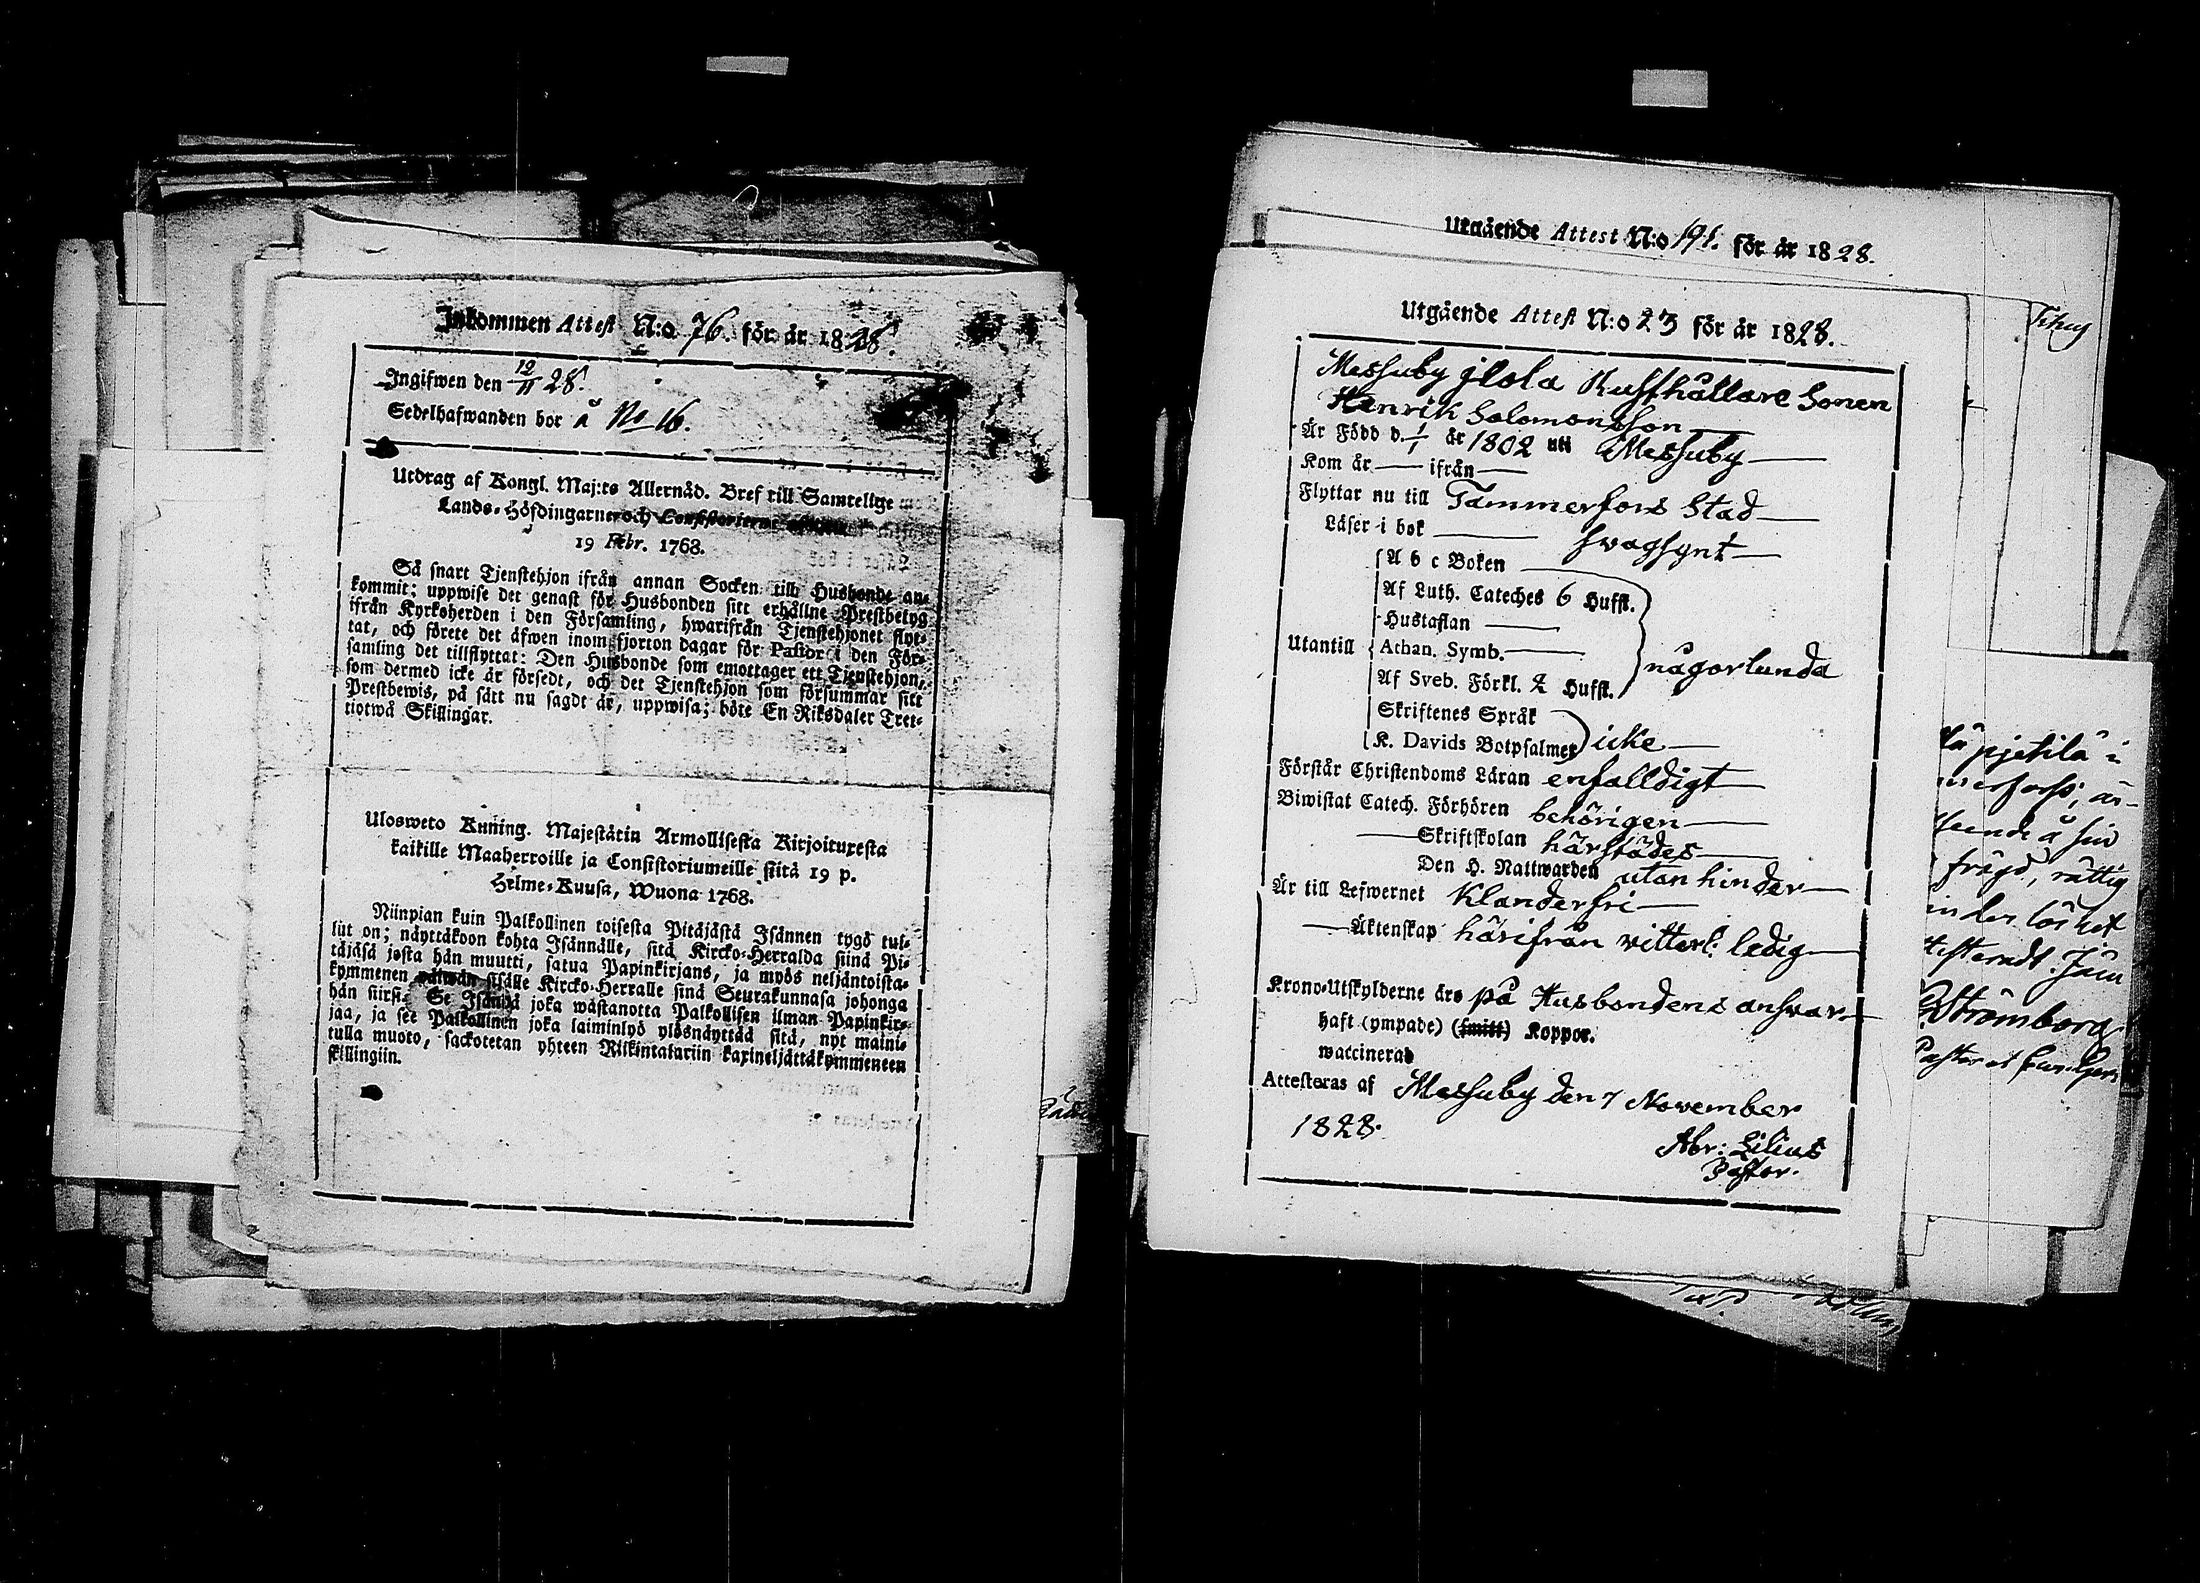 Inkommen Attest N:o 76. för år 1828.
Ingifwen den 12/11 28.
Sedelhafwanden bor å No 16.
Utdrag af Kongl. Maj:ts Allernåd. Bref till Samtelige
Lands-Höfdingarne och Consistorierne
19 Febr. 1768.
Så snart Tjenstehjon ifrån annan Socken till Husbonde an-
kommit; uppwise det genast för Husbonden sitt erhållne Prestbetyg
ifrån Kyrkoherden i den Församling, hwarifrån Tjenstehjonet flyt-
tat, och förete det äfwen inom fjorton dagar för Pastor i den För-
samling det tillflyttat: Den Husbonde som emottager ett Tjenstehjon,
som dermed icke är försedt, och det Tjenstehjon som försummar sitt
Prestbewis, på sätt nu sagdt är, uppwisa; böte En Riksdaler Tret-
tiotwå Skillingar.
Ulosweto Kuning. Majestätin Armollisesta Kirjoituxesta
kaikille Maaherroille ja Consistoriumeille siitä 19 p.
Helme-Kuusa, Wuona 1768.
Niinpian kuin Palkollinen toisesta Pitäjästä Isännen tygö tul-
lut on; näyttäköön kohta Isännälle, sitä Kircko-Herralda siinä Pi-
täjäsä josta hän muutti, satua Papinkirjans, ja myös neljäntoista-
kymmenen päiwän sisälle Kircko-Herralle siinä Seurakunnasa johonga
hän siirsi. Se Isändä joka wastanotta Palkollisen ilman Papinkir-
jaa, ja see Palkollinen joka laiminlyö ylösnäyttää sitä, nyt maini-
tulla muoto, sackotetan yhteen Riikintalariin kaxineljättäkymmeneen
skillingiin.
Utgående Attest N:o 191. för år 1828.
Utgående Attest N:o 23 för år 1828.
Messuby Jlola Rusthållare Sonen
Henrik Salomonsson
Är Född d. 1/1 år 1802 uti Messuby
Kom år — ifrån —
Flyttar nu till Tammerfors Stad
Läser i bok — swagsynt
A b c Boken
Af Luth. Cateches 6 Hufst.
Hustaflan —
Utantill Athan. Symb. — någorlunda
Af Sveb. Förkl. 2 Hufst.
Skriftenes Språk
K. Davids Botpsalmer icke
Förstår Christendoms Läran enfalldigt
Biwistat Catech. Förhören behörigen
Skriftskolan härstädes
Den H. Nattwarden utan hinder
Är till Lefwernet Klanderfri
Äktenskap härifrån vitterl: ledig
Krono-Utskylderne äro på Husbondens answar
haft (ympade) (smitt) Koppor.
waccinerad
Attesteras af Messuby den 7 November
1828.
Abr: Lilius
Pastor.
frägd, rättig
Strömborg